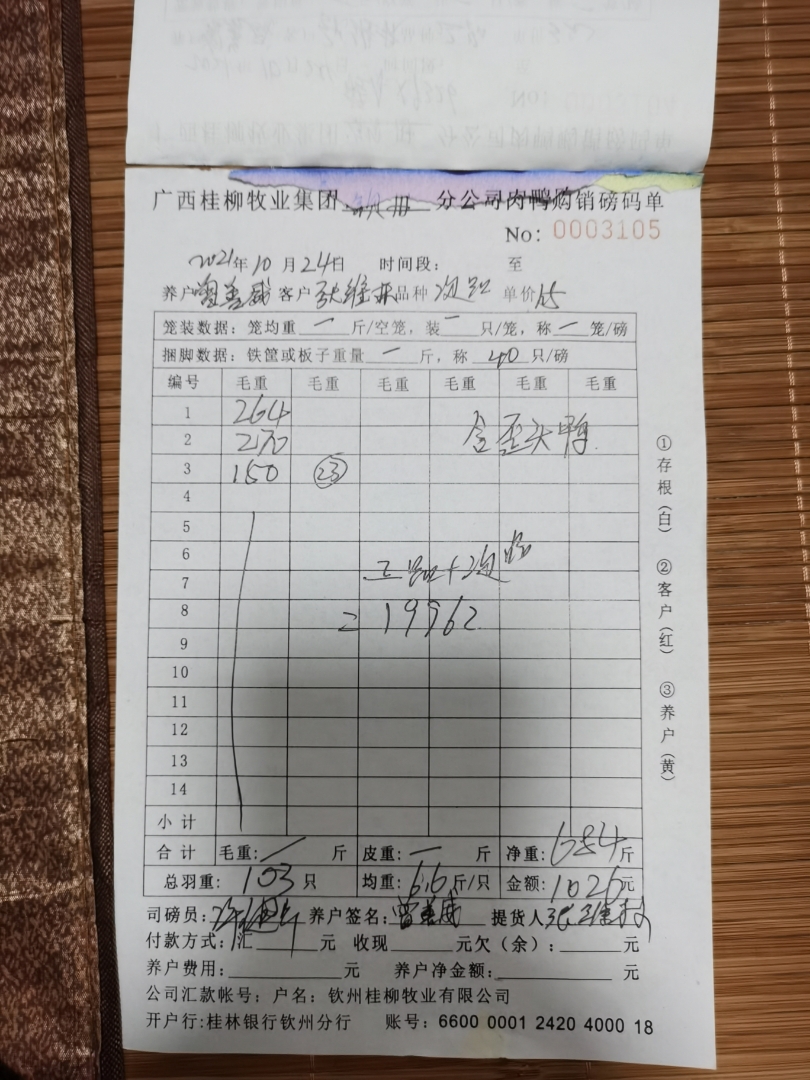 广西桂柳牧业集团 钦州 分公司肉鸭购销磅码单
No: 0003105
2021年10月24日 时间段: 至
养户曾善威 客户张维 品种 次品 单价1.5
笼装数据: 笼均重 一 斤/空笼, 装 一 只/笼, 称 一 笼/磅
捆脚数据: 铁筐或板子重量 一 斤, 称 40 只/磅
编号 毛重 毛重 毛重 毛重 毛重 毛重
1 264
2 270 全歪头鸭
3 150 23
4
5
6
7 正品+次品
8 =19962
9
10
11
12
13
14
小计
合计 毛重: / 斤 皮重: 一 斤 净重: 684斤
总羽重: 103 只 均重: 6.6斤/只 金额: 1026元
司磅员: 养户签名: 曾善威 提货人 张维
付款方式: 汇 元 收现 元欠(余): 元
养户费用: 元 养户净金额: 元
公司汇款帐号; 户名: 钦州桂柳牧业有限公司
开户行:桂林银行钦州分行 账号: 6600 0001 2420 4000 18
①存根(白) ②客户(红) ③养户(黄)